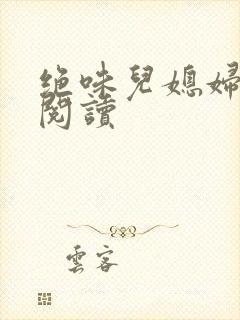 絕味兒媳婦
閱讀
雲客